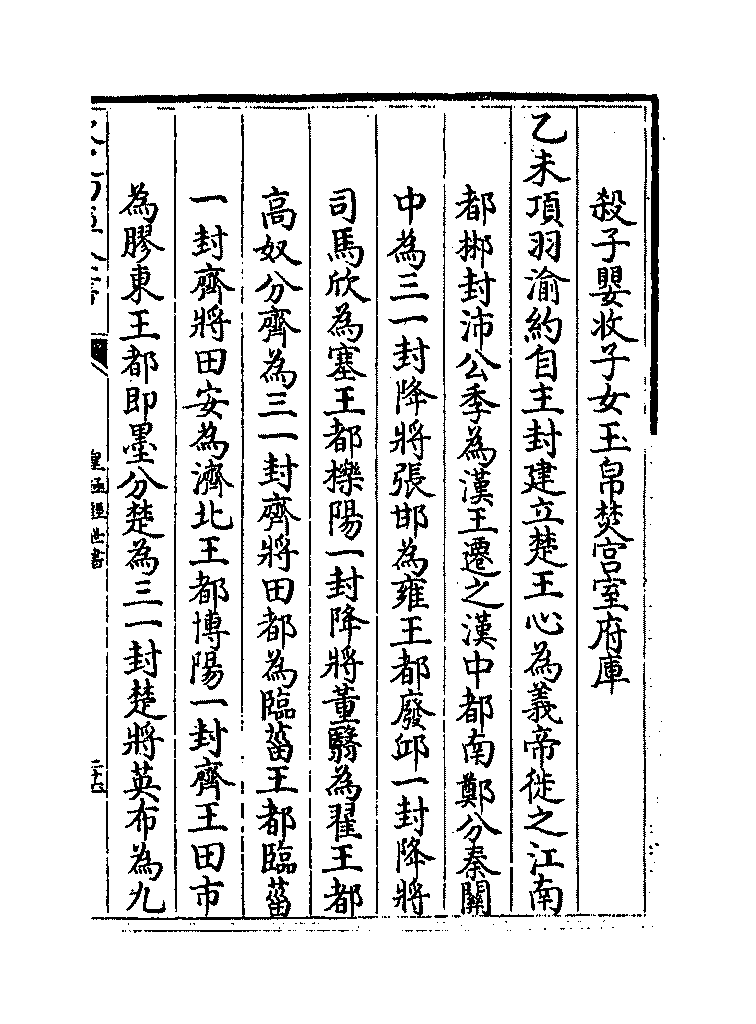 殺子嬰收子女玉帛焚宫室府庫
乙未項羽渝約自主封建立楚王心為義帝徙之江南
都郴封沛公季為漢王遷之漢中都南鄭分秦關
中為三一封降將張邯為雍王都廢邱一封降將
司馬欣為塞王都櫟陽一封降將董翳為翟王都
高奴分齊為三一封齊將田都為臨菑王都臨菑
一封齊將田安為濟北王都博陽一封齊王田市
為膠東王都即墨分楚為三一封楚將英布為九
皇極經世書